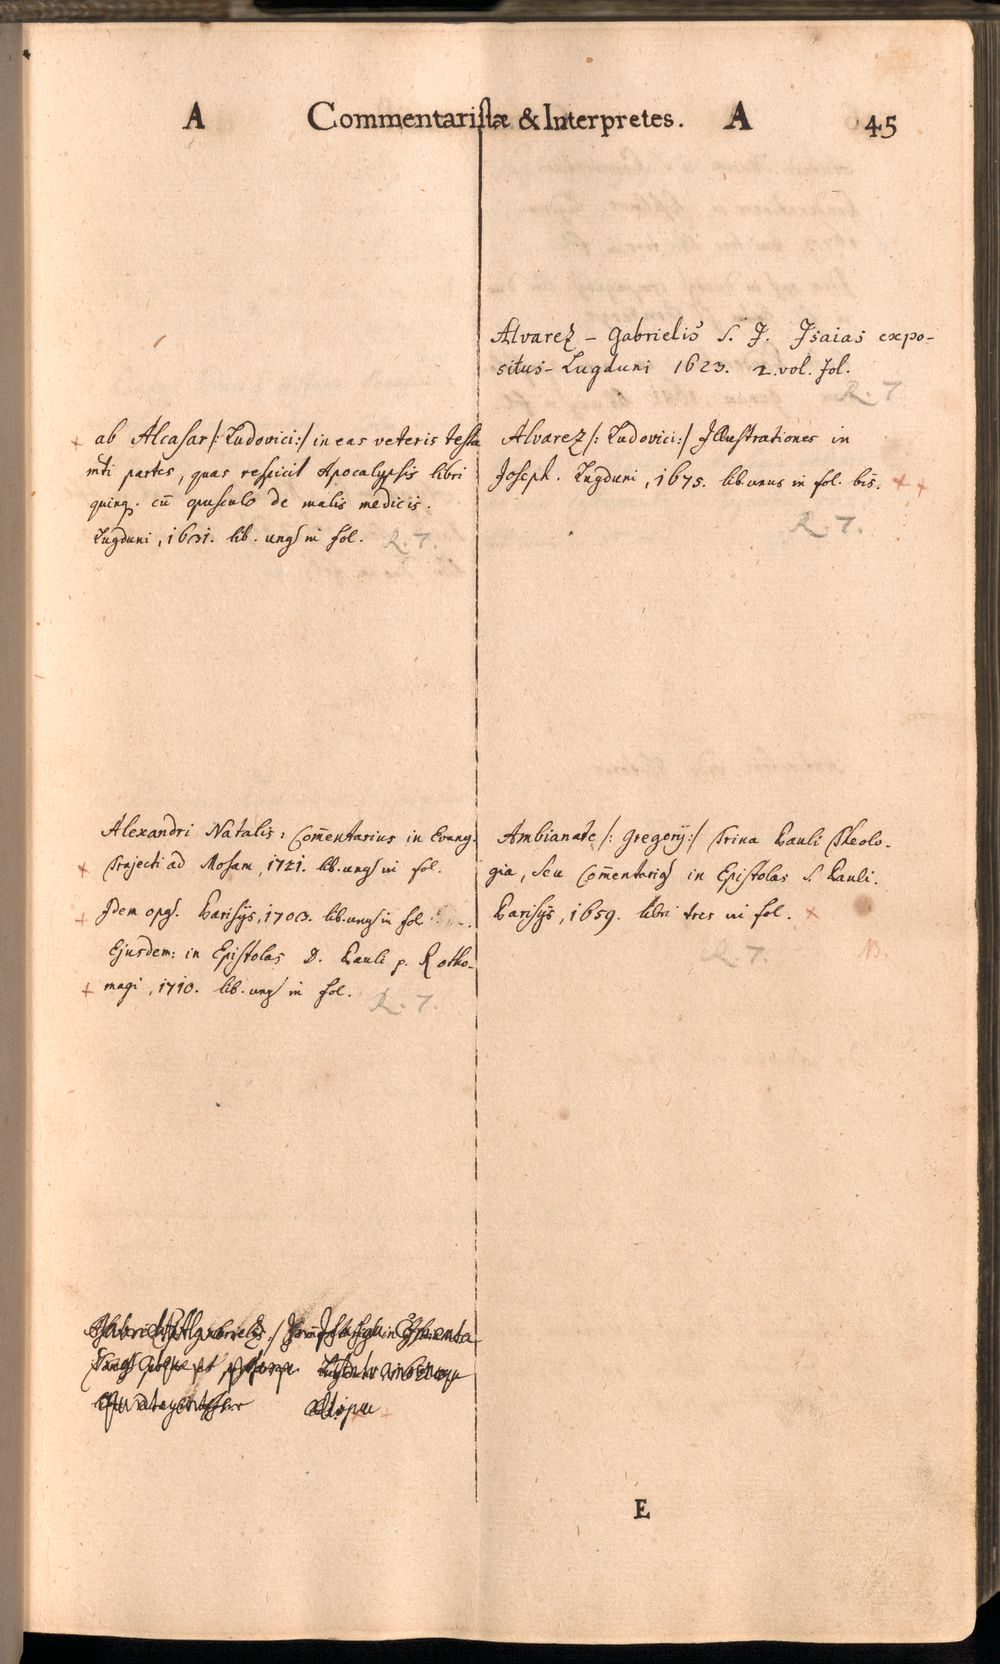 A Commentaristæ & Interpretes. A 45
ab Alcasar /: Ludovici :/ in eas veteris testa
mti partes, quas respicit Apocalypsis libri
quinq. cū opusculo de malis medicis.
Lugduni, 1631. lib. unꝰ in fol. R. 7.
Alexandri Natalis: Com̄entarius in Evang.
+ Trajecti ad Mosam, 1721. lib. unꝰ in fol.
+ Idem opꝰ. Parisijs, 1703. lib. unꝰ in fol
Ejusdem: in Epistolas D. Pauli p. Rotho-
+ magi, 1710. lib. unꝰ in fol. R. 7.
Alvarez – Gabrielis S. J. Isaias expo-
situs – Lugduni 1623. 2. vol. fol.
R. 7
Alvarez /: Ludovici :/ Illustrationes in
Joseph. Lugduni, 1675. lib. unus in fol. bis. + +
R. 7.
Ambianate /: Gregorij :/ Trina Pauli Theolo-
gia, seu Com̄entariꝰ in Epistolas S. Pauli.
Parisijs, 1659. libri tres in fol. +
R. 7.
E